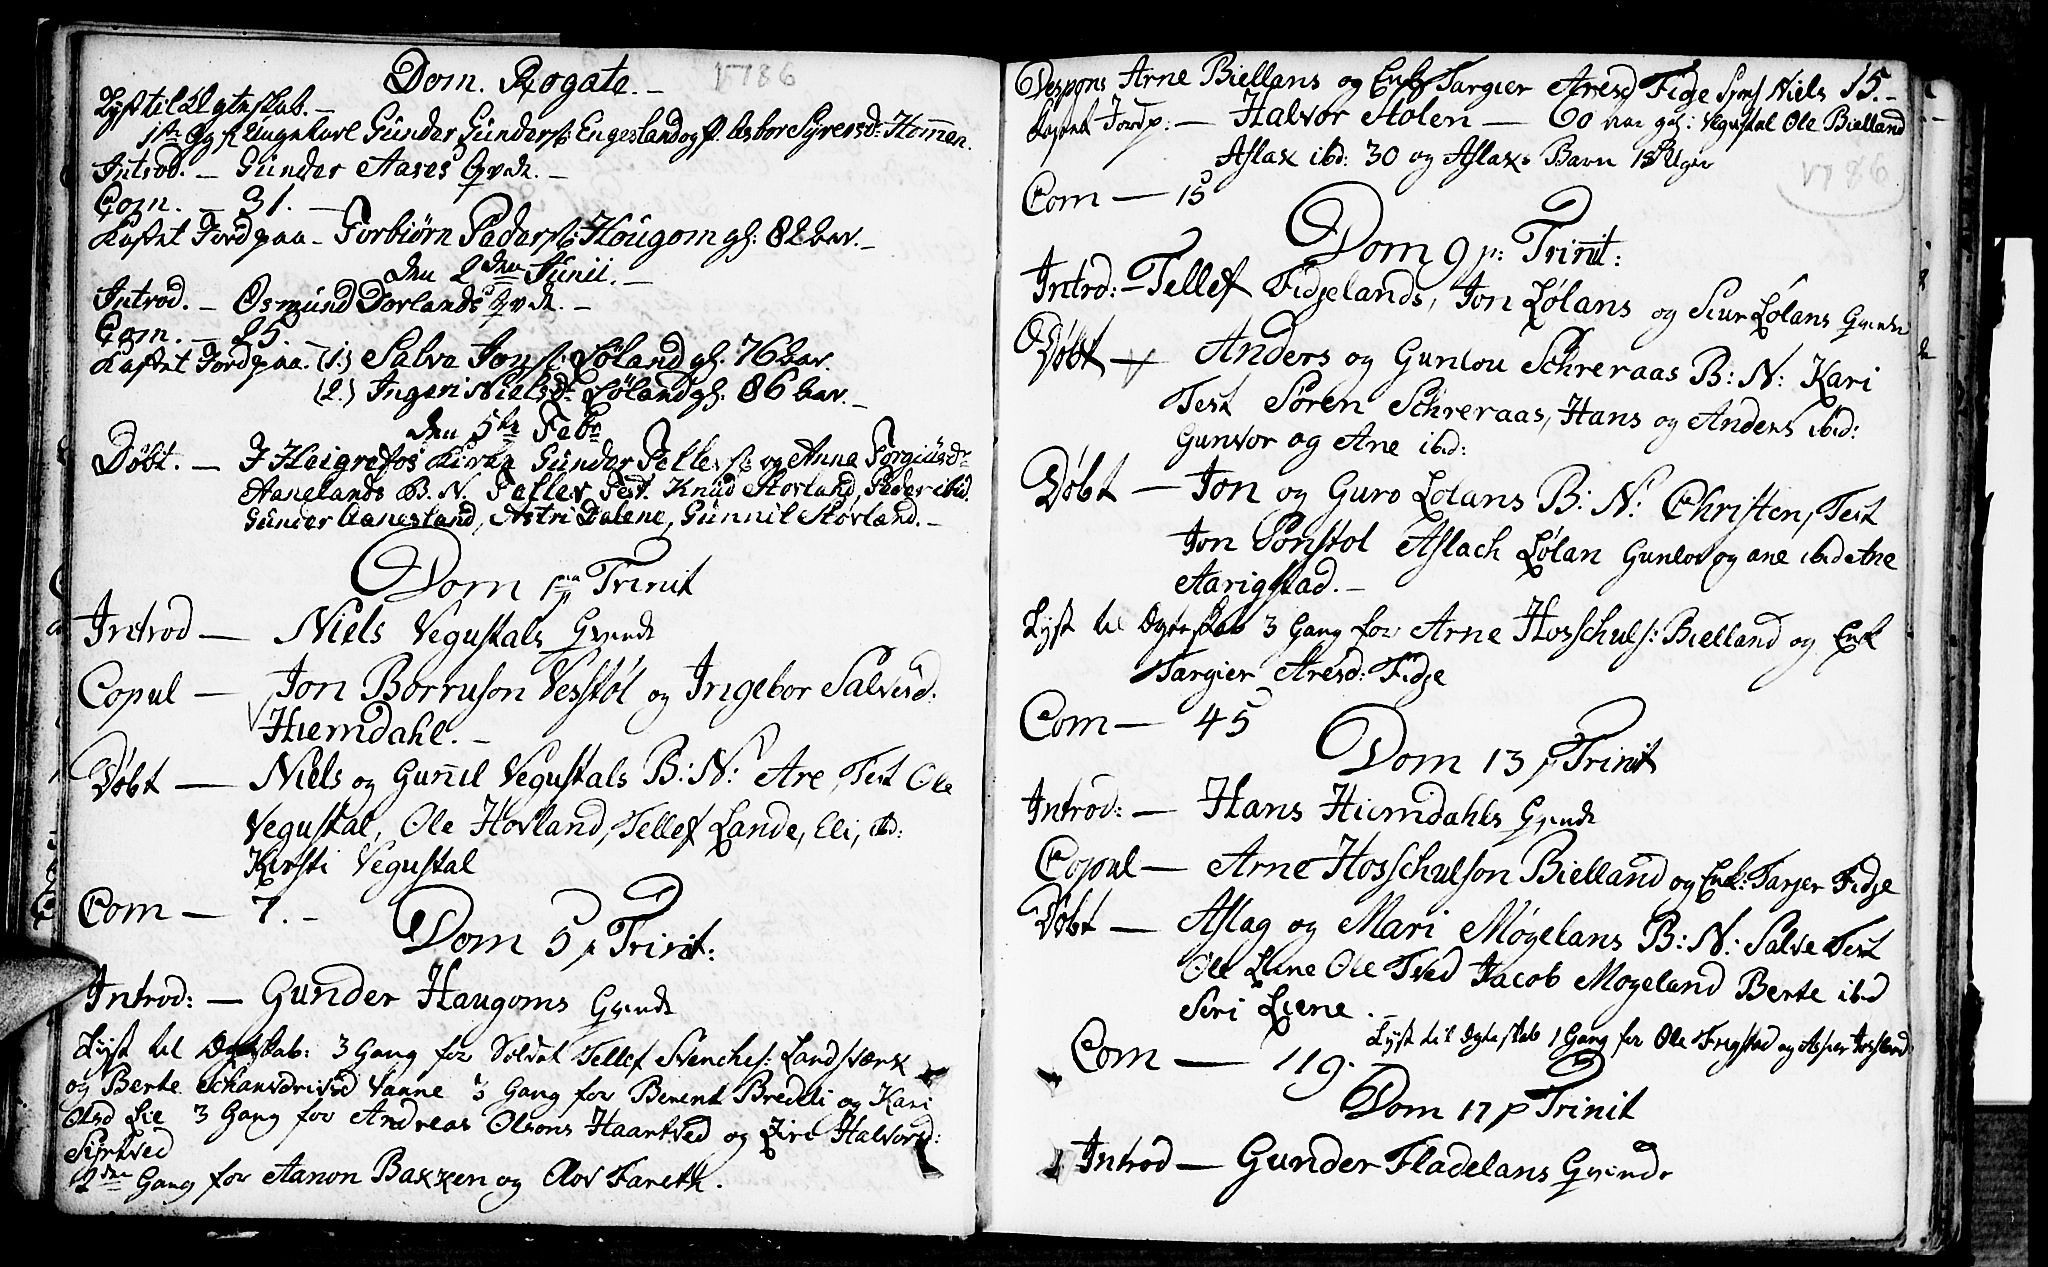 Dom. Rogate. – 1786
Lyst til Ægteskab. –
1ste Gg f. Ungekarl Gunder Gunders: Engesland og P. Asbor Syversd: Hommen.
Introd. – Gunder Aases Qvde. –
Com. – 31. –
Kastet Jord paa – Torbiørn Peders: Hougom gl: 82 aar. –
den 2den Junii. –
Introd. – Osmund Dorlands Qvde. –
Com. – 25.
Kastet Jord paa. (1.) Salve Jons: Løland gl. 76 aar.
(2.) Ingeri Nielsd: Løland gl: 86 aar. –
den 5te Feb
Døbt. – I Heigrefos Kirke Gunder Tellefs: og Anne Torgiusd:
Aanelands B. N. Tellev Test. Knud Stovland, Peder ibid.
Gunder Aanesland, Astri Dalene, Gunnil Stovland. –
Dom 1ma Trinit
Introd — Niels Vegustals Qvinde
Copul — Jon Borruson Vesstøl og Ingebor Salvesd:
Hiemdahl. –
Døbt — Niels og Gunnil Vegustals B: N: Are, Test Ole
Vegustal, Ole Hovland, Tellef Lande, Eli, ibd:
Kirsti Vegustal
Com — 7. –
Dom 5 p Trinit:
Introd: — Gunder Haugoms Qvinde
Lyst til Ægteskab: 3 Gang for Soldat Tellef Svenches: Landsværk
og Berte Vanne 3 Gang for Berent Bredeli og Kari
Olsd Lie 3 Gang for Andreas Olsons Haartved og Siri Halvorsd:
Syrtved
2den Gang for Aanon Baxxen og Olov Fareth.
Despons Arne Biellans og Enke Targier Aresd Fidje Niels 15. –
Kastet Jord p: – Halvor Stolen — 60 aar gl: Vegustal Ole Bielland
Aslax ibd: 30 og Aslaxs Barn 18 Uger
1786
Com — 15
Dom 9 p: Trinit:
Introd: – Tellef Fidjelands, Jon Lølans og Siur Lølans Qvinder
Døbt — Anders og Gunlou Schreraas B: N: Kari
Test Søren Schreraas, Hans og Anders ibid:
Gunvor og Ane ibd:
Døbt — Jon og Guro Lølans B: N: Christen, Test
Jon Aslach Lølan Gunlov og ane ibid Ane
Aarigstad. –
Lyst til Ægteskab 3 Gang for Arne Hosschuls: Bielland og Enk
Targier Aresd: Fidje
Com — 45
Dom 13 p Trinit
Introd: — Hans Hiemdahls Qvinde
Copul — Arne Hosschulson Bielland og Enk: Tarjer Fidje
Døbt — Aslag og Mari Møgelans B: N: Salve Test
Ole Liene Ole Tved Jacob Mogeland Berte ibid
Siri Liene. –
Lyst til Ægteskab 1 Gang for Ole Frigstad og
Com — 119. –
Dom 17 p Trinit
Introd — Gunder Fladelans Qvinde